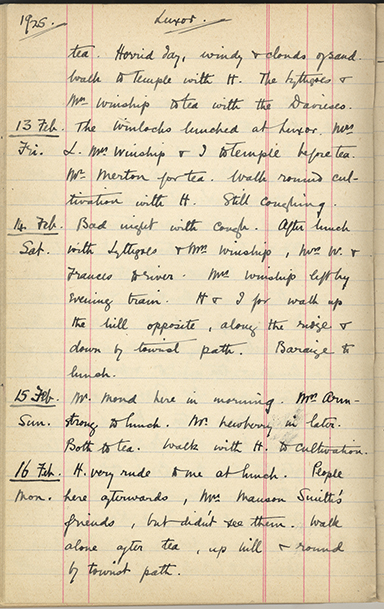 1925. Luxor.
tea. Horrid day, windy & clouds of sand.
Walk to Temple with H. The Lythgoes &
Mrs Winship to tea with the Davieses.
13 Feb. The Winlocks lunched at Luxor. Mrs
Fri. L. Mrs Winship & I to temple before tea.
Mr Merton for tea. Walk round cul-
tivation with H. Still coughing.
14 Feb. Bad night with cough. After lunch
Sat. with Lythgoes & Mrs Winship, Mrs W. &
Frances to river. Mrs Winship left by
evening train. H & I for walk up
the hill opposite, along the ridge &
down by tourist path. Baraize to
lunch.
15 Feb. Mr Mond here in morning. Mrs Arm-
Sun. strong to lunch. Mr Newberry in later.
Both to tea. Walk with H. to cultivation.
16 Feb. H. very rude to me at lunch. People
Mon. here afterwards, Mrs Manson Smith's
friends, but didn't see them. Walk
alone after tea, up hill & round
by tourist path.